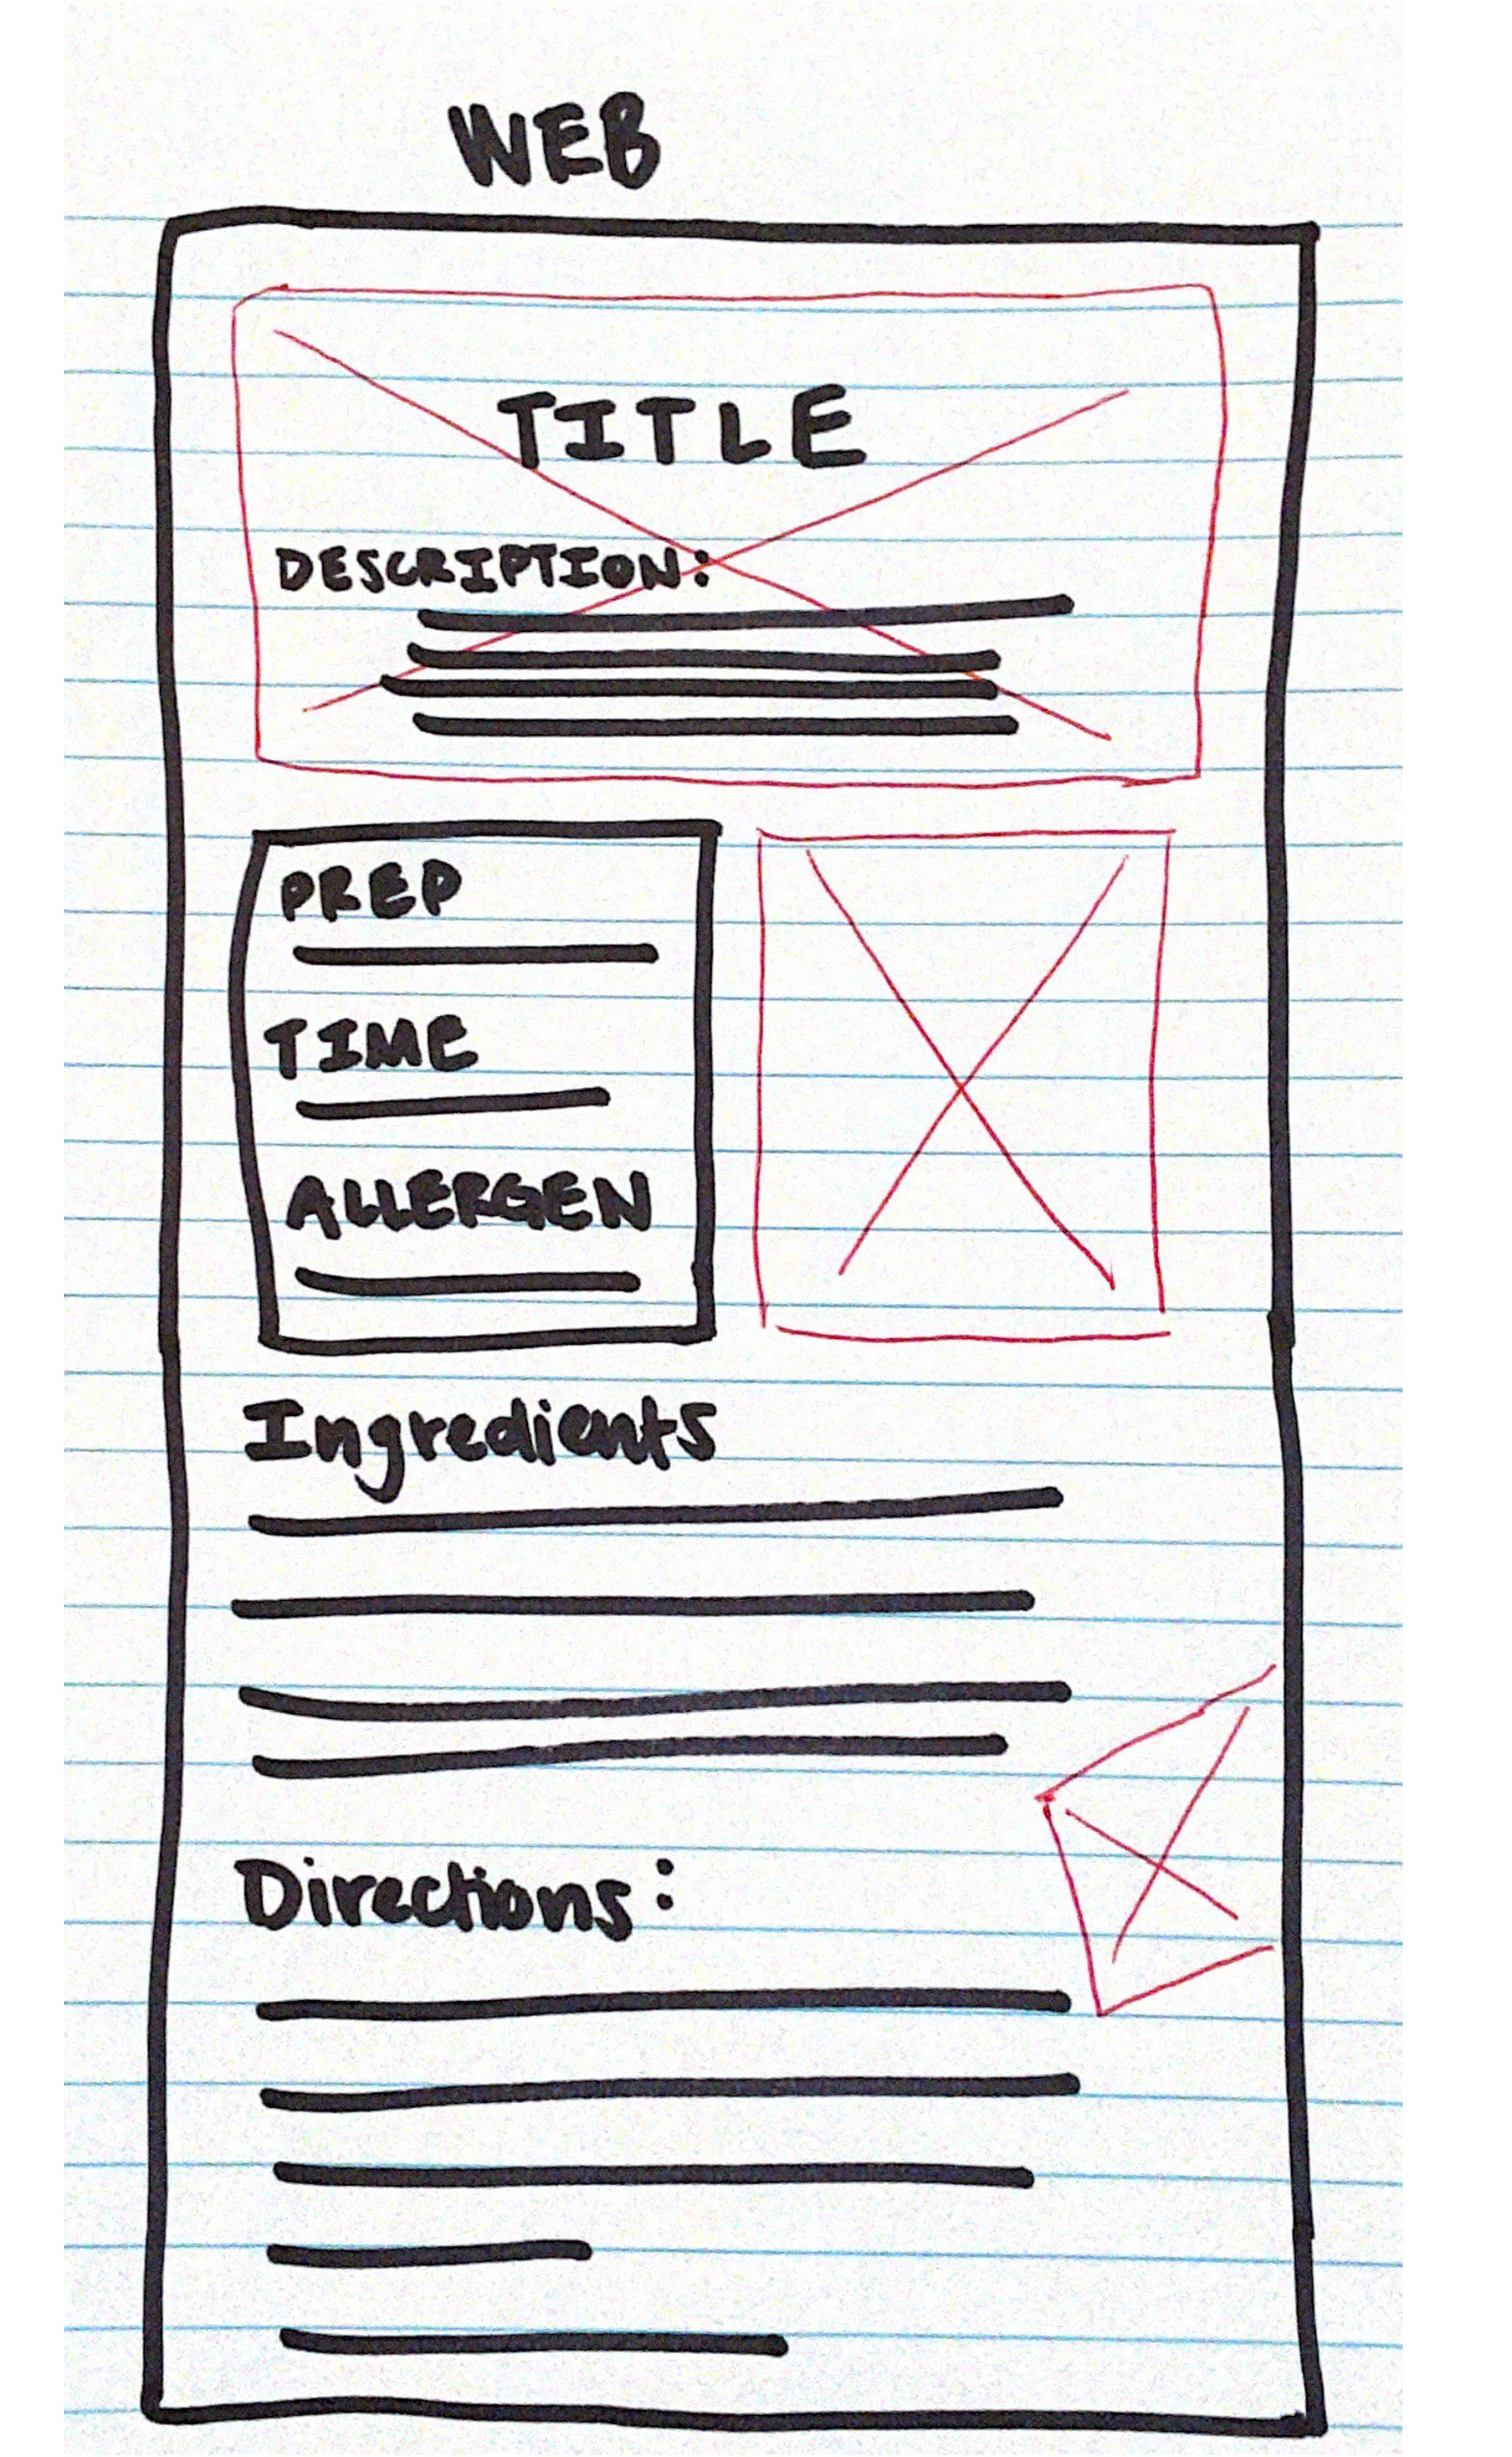 WEB
TITLE
DESCRIPTION:
PREP
TIME
ALLERGEN
Ingredients
Directions: